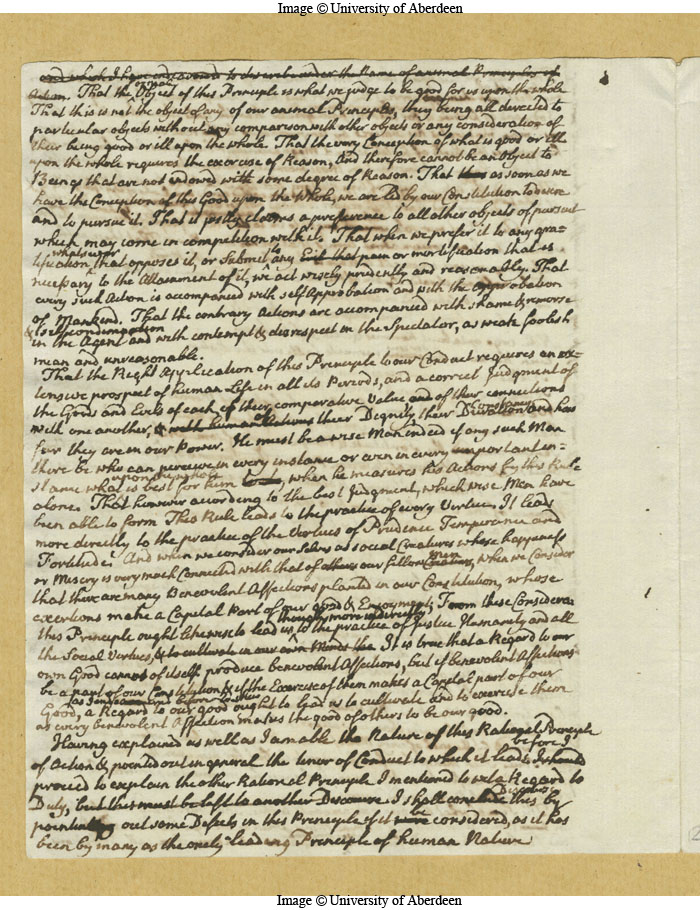 Image © University of Aberdeen
and which I have endeavoured to describe under the Name of animal Principles of
formal
Action. That the Object of this Principle is what we judge to be good for us upon the whole
That this is not the object of any of our animal Principles, they being all directed to
particular objects without any comparison with other objects or any consideration of
their being good or ill upon the whole. That the very Conception of what is good or ill
upon the whole requires the exercise of Reason, And therefore cannot be an Object to
Beings that are not endowed with some degree of Reason. That as soon as we
have the Conception of this Good upon the Whole, we are led by our Constitution to desire
and to pursue it. That it justly claims a preference to all other objects of pursuit
which may come in competition with it. That when we prefer it to any gra-
whatsoever
tification that opposes it, or Submit to any Evil that pain or mortification that is
necessary to the Attainment of it, we act wisely prudently and reasonably. That
every such Action is accompanied with self Approbation and with the approbation
of Mankind. That the contrary Actions are accompanied with shame & remorse
& self condemnation
in the Agent and with contempt & disrespect in the Spectator, as weak foolish
mean and unreasonable.
That the Right Application of this Principle to our Conduct requires an ex-
tensive prospect of human Life in all its Periods, and a correct Judgment of
the Goods and Evils of each of their comparative Value and of their connections
with one another, & their Dignity their Duration and how
far they are in our Power. He must be a wise Man indeed if any such Man
there be who can perceive in every instance or even in every important in-
upon the whole
stance what is best for him, when he measures his Actions by this Rule
alone. That however according to the best Judgment, which wise Men have
been able to form This Rule leads to the practice of every Vertue. It leads
more directly to the practice of the Vertues of Prudence Temperance and
Fortitude. And when we consider our Selves as social Creatures whose happiness
men
or Misery is very much Connected with that of others our fellow Creatures, when we Consider
that there are many Benevolent Affections planted in our Constitution, whose
exertions make a Capital Part of our good & Enjoyment; From these Considera
though more indirectly
this Principle ought likewise to lead us, to the practice of Justice Humanity and all
the Social Vertues, & to cultivate in our own Minds the. It is true that a Regard to our
own Good cannot of itself produce benevolent Affections, but if benevolent Affections
be a part of our Constitution & if the Exercise of them makes a Capital part of our
Good, a Regard to our good ought to lead us to cultivate and to exercise them
as every benevolent Affection makes the good of others to be our good.
Having explained as well as I am able the Nature of this Rational Principle
before I
of Action & pointed out in general the tenor of Conduct to which it leads I should
proceed to explain the other Rational Principle I mentioned to wit a Regard to
Discourse
Duty, but this must be left to another Discourse I shall conclude this by
pointing out some Defects in this Principle if it be considered, as it has
been by many as the only leading Principle of human Nature
Image © University of Aberdeen